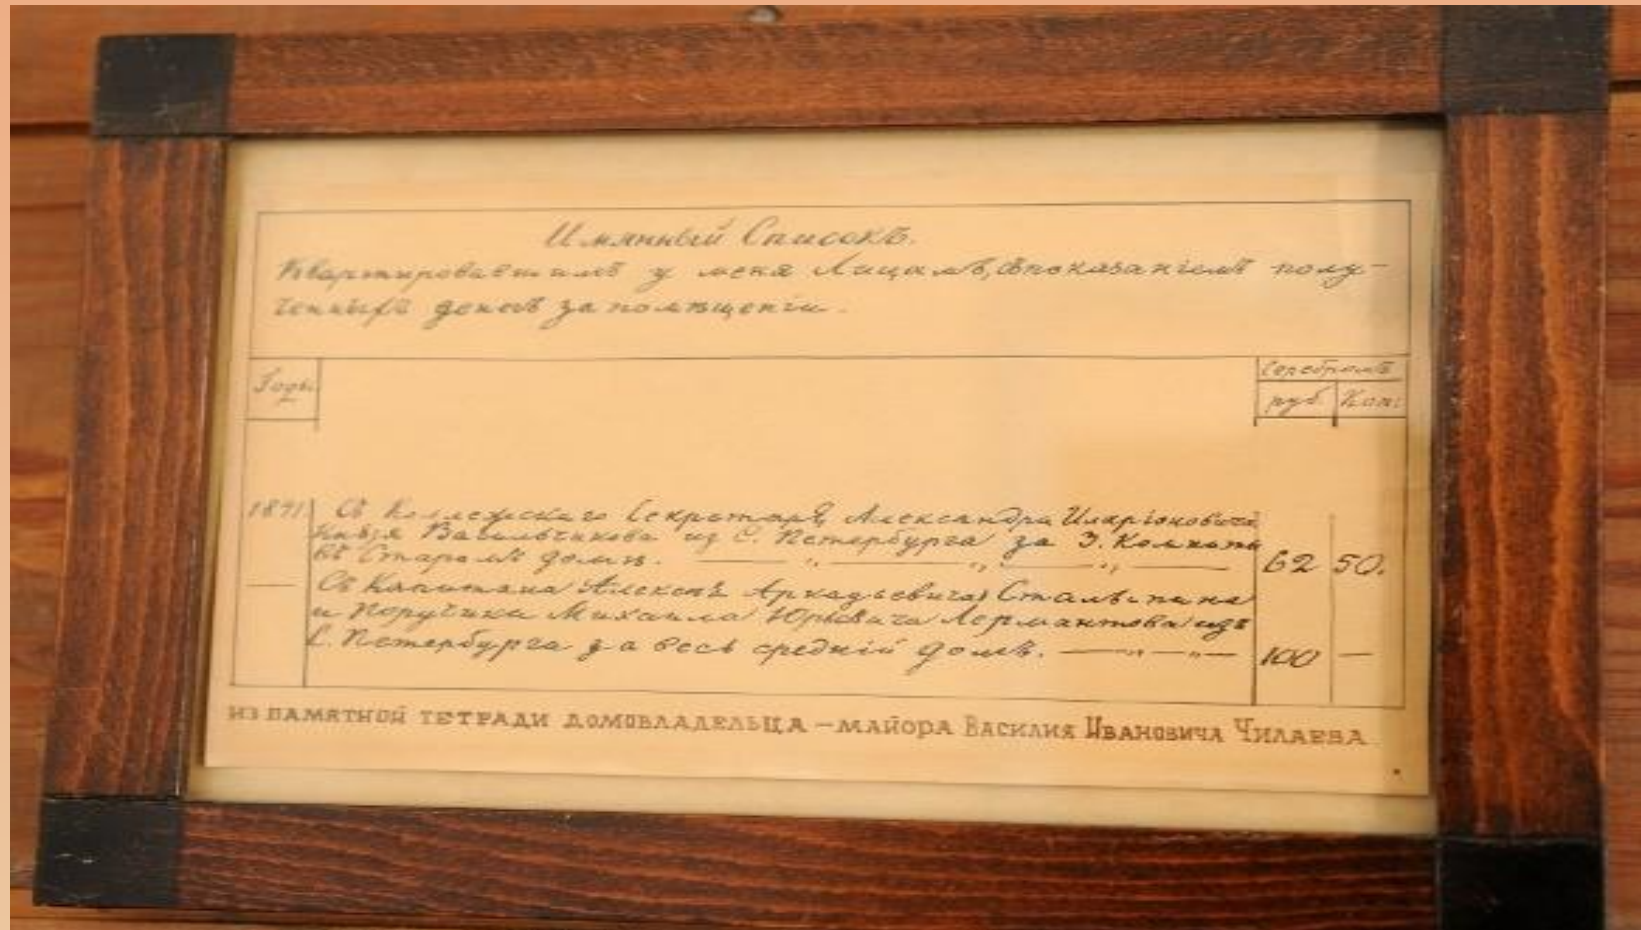 Имянный Списокъ.
Квартировавшимъ у меня Лицамъ, съ показаніемъ полу-
ченныхъ денегъ за помѣщеніи.
Годы
Серебромъ
руб. Коп:
1841 Съ Коллежскаго Секретаря, Александра Иларіоновича
Князя Васильчикова из С. Петербурга за 3. Комнаты
въ Старомъ домѣ. — „ — „ — „ — 62 50.
— Съ Капитана Алексѣя Аркадьевича Столыпина
и Поручика Михаила Юрьевича Лермантова изъ
С. Петербурга за весь средній домъ. — „ — „ — 100 —
ИЗ ПАМЯТНОЙ ТЕТРАДИ ДОМОВЛАДЕЛЬЦА – МАЙОРА ВАСИЛИЯ ИВАНОВИЧА ЧИЛАЕВА